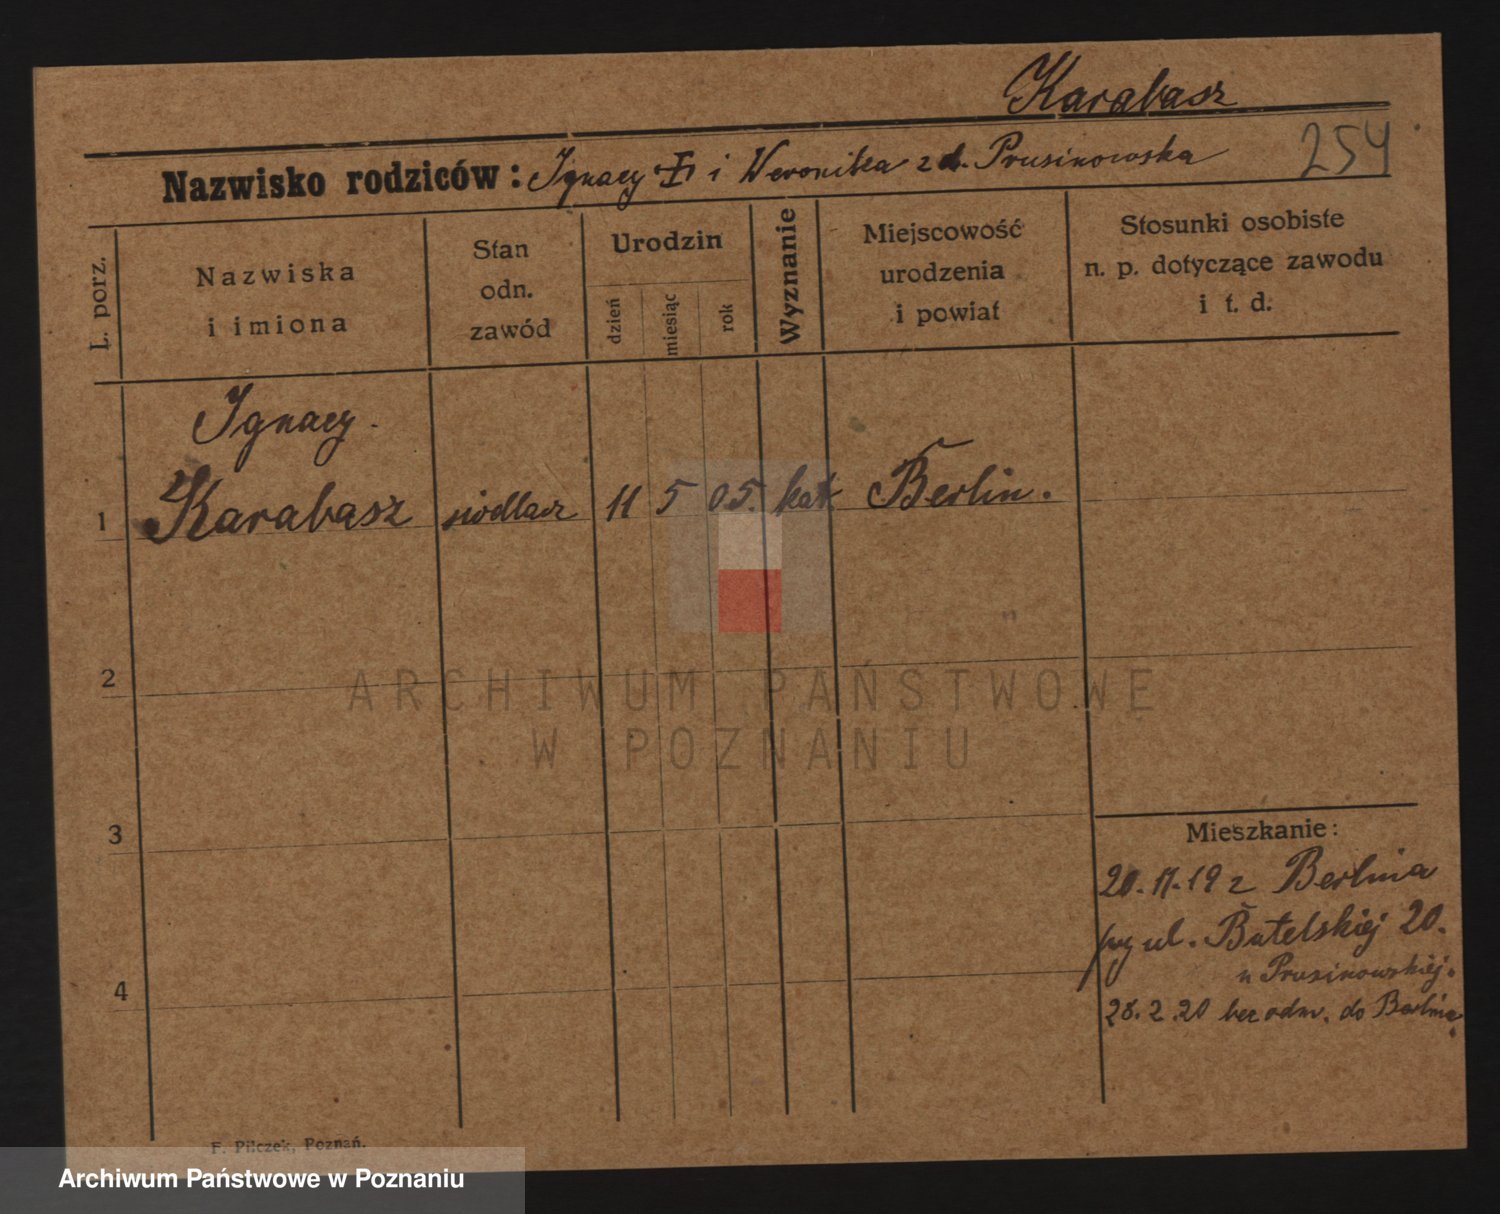 Karabasz
254
Nazwisko rodziców: Ignacy i Weronika z d. Prusinowska
L. porz.
Nazwiska
i imiona
Stan
odn.
zawód
Urodzin
dzień
miesiąc
rok
Wyznanie
Miejscowość
urodzenia
i powiat
Stosunki osobiste
n. p. dotyczące zawodu
i t. d.
Ignacy
1 Karabasz siodlarz 11 5 05. kat Berlin.
2
3
4
Mieszkanie:
20.11.19 z Berlina
ul. Butelskiej 20.
u Prusinowskiej.
28.2.20 bez odm. do Berlina
F. Pilczek, Poznań.
ARCHIWUM PAŃSTWOWE
W POZNANIU
Archiwum Państwowe w Poznaniu